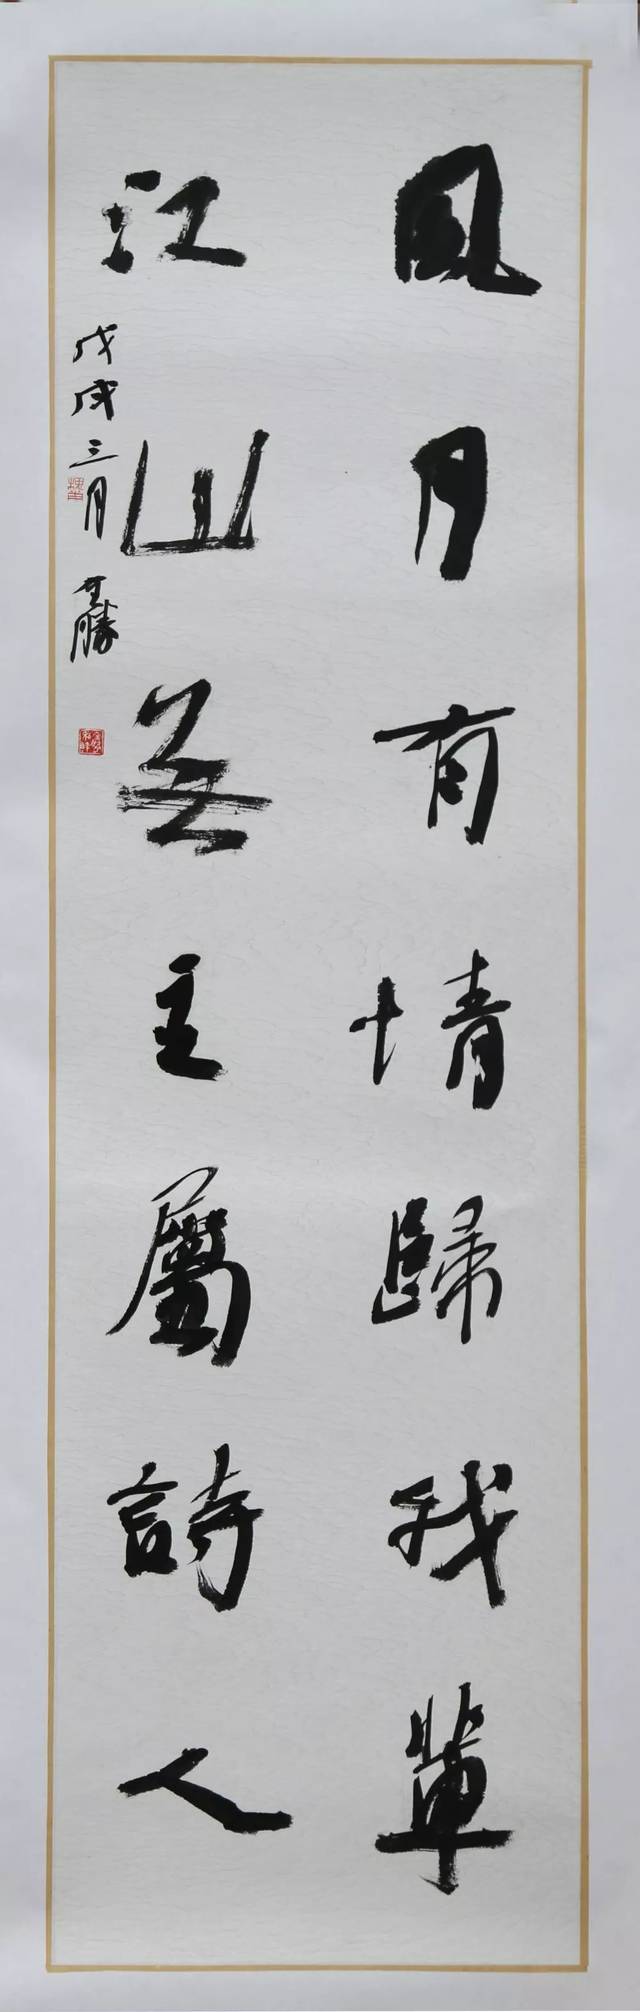 風月有情歸我輩
江山無主屬詩人
戊戌三月